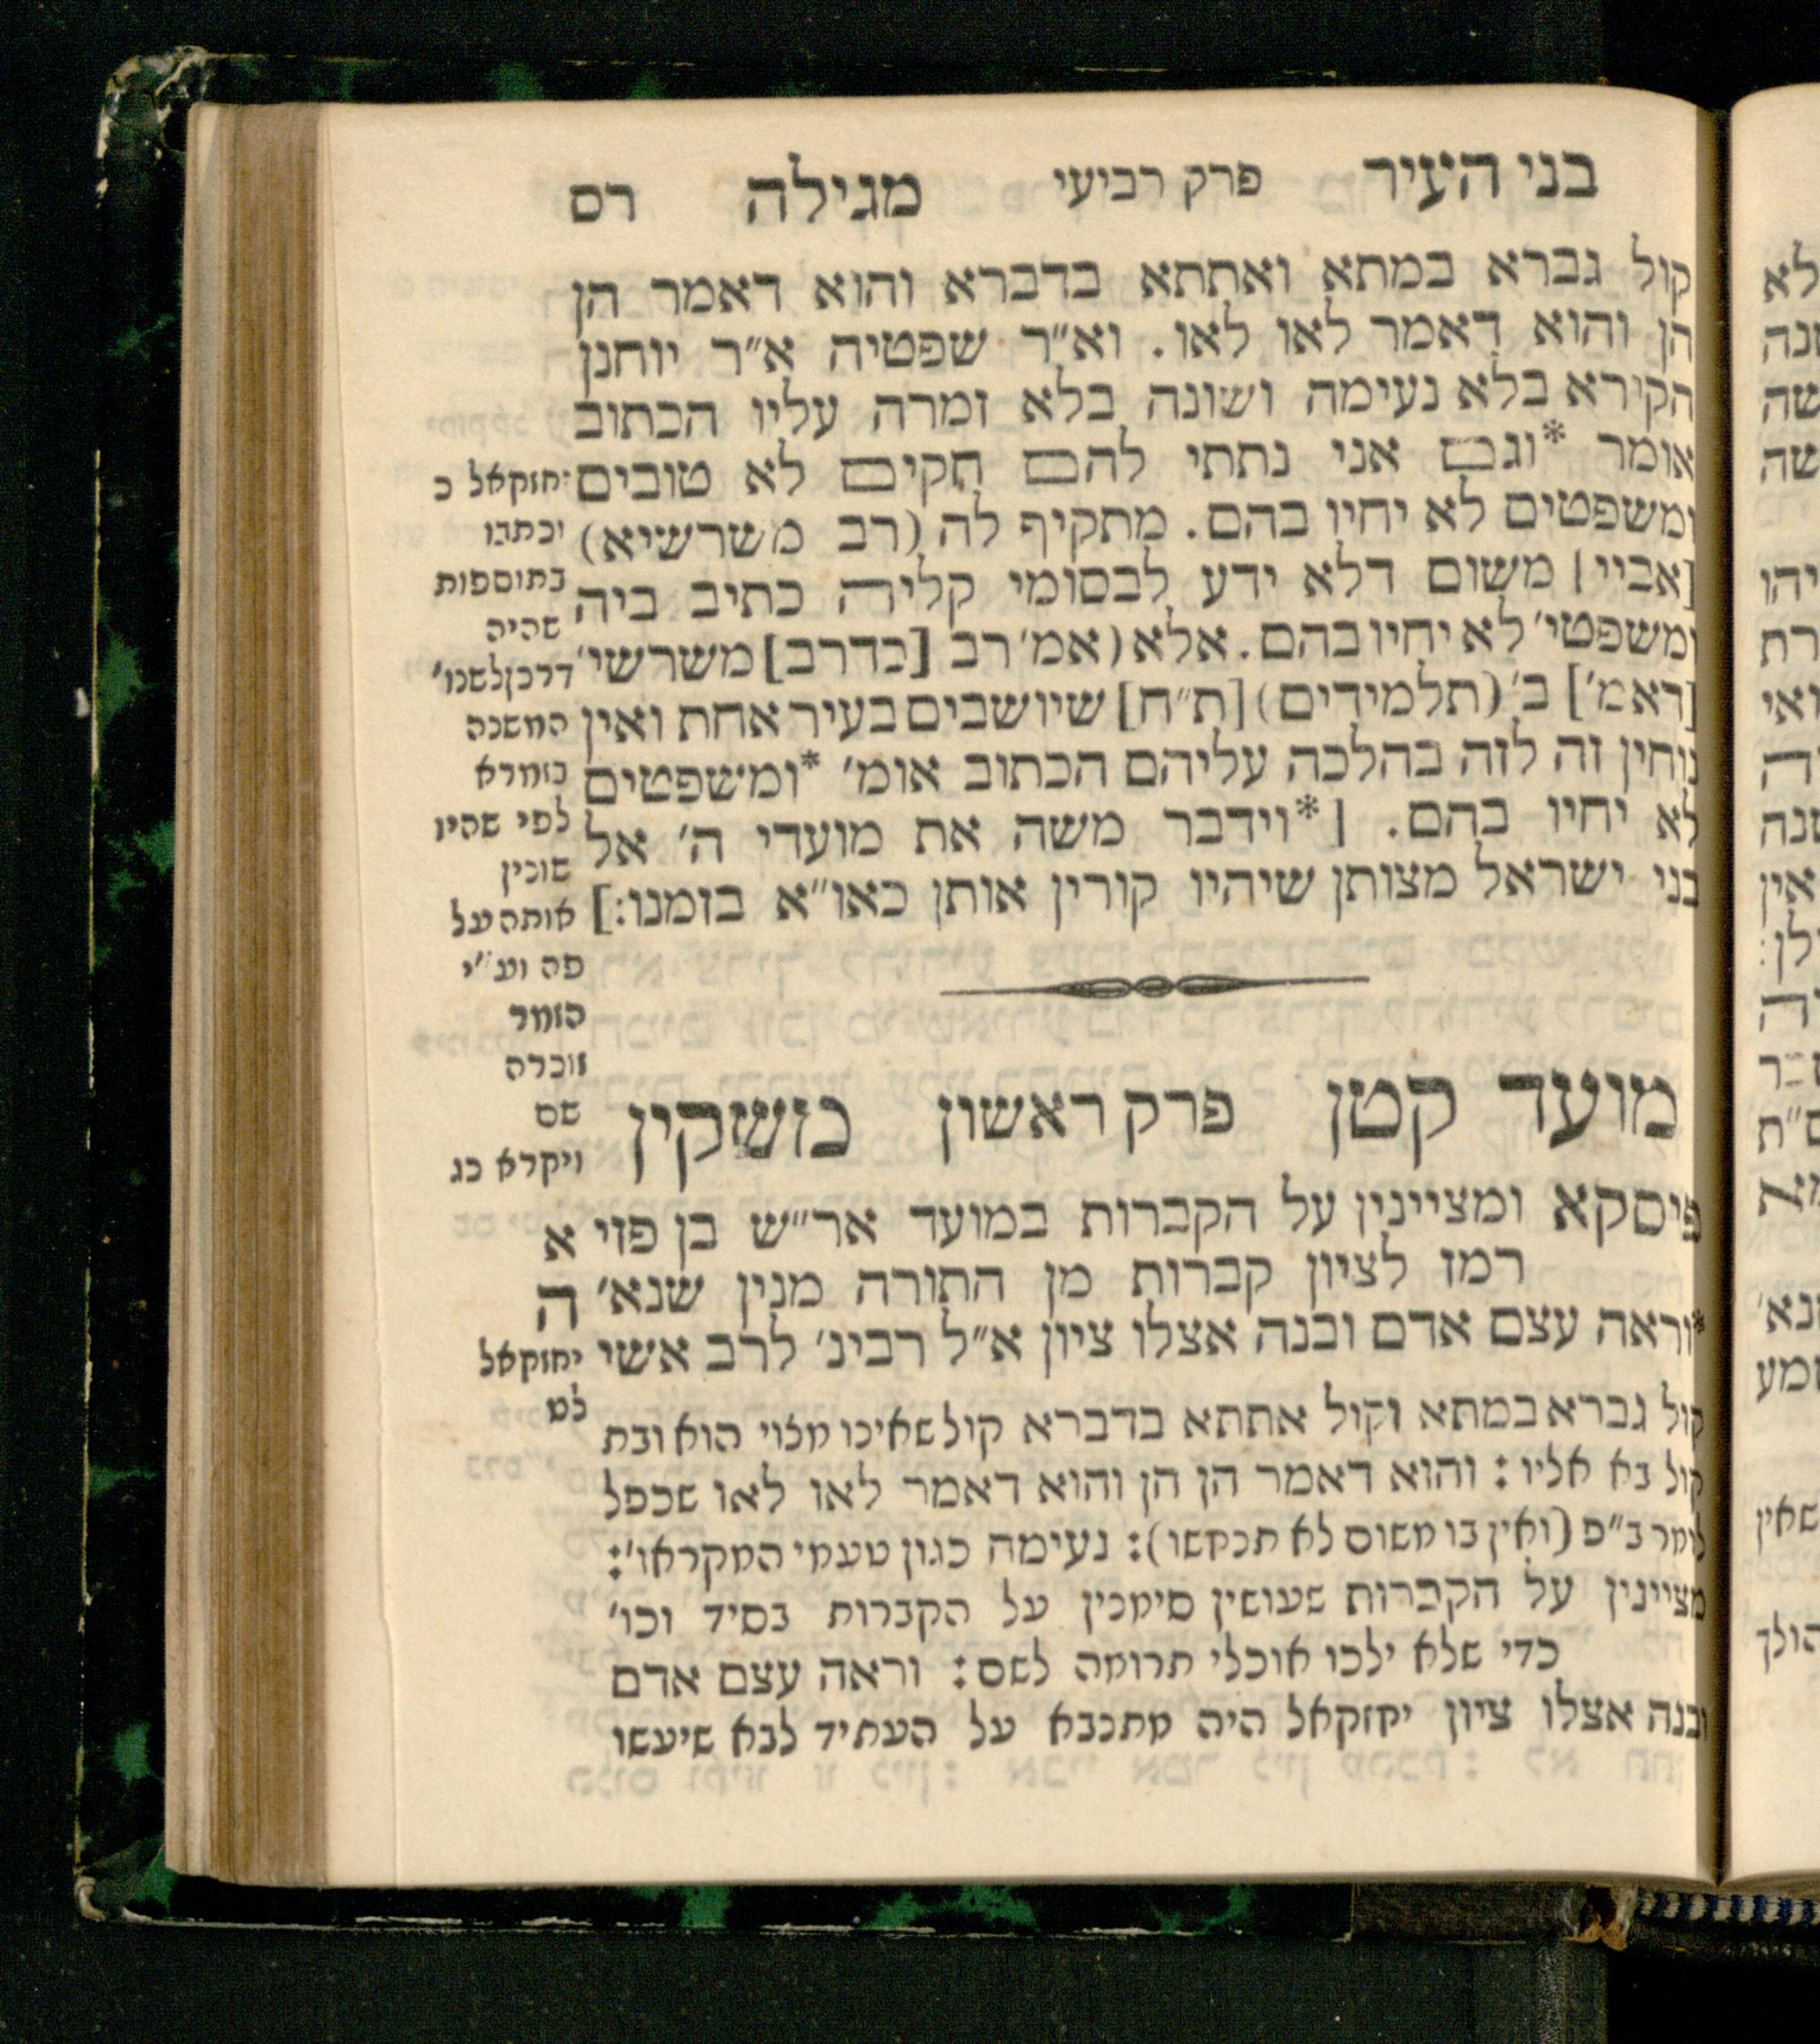 בני העיר פרק רביעי מגילה רס
קול גברא במתא ואתתא בדברא והוא דאמר הן
הן והוא דאמר לאו לאו. וא״ר שפטיה א״ר יוחנן
הקורא בלא נעימה ושונה בלא זמרה עליו הכתוב
אומר *וגם אני נתתי להם חקים לא טובים
ומשפטים לא יחיו בהם. מתקיף לה (רב משרשיא)
[אביי] משום דלא ידע לבסומי קליה כתיב ביה
ומשפטי׳ לא יחיו בהם. אלא (אמ׳ רב [כדרב] משרשי׳
[דאמ׳] ב׳ (תלמידים) [ת״ח] שיושבים בעיר אחת ואין
נוחין זה לזה בהלכה עליהם הכתוב אומ׳ *ומשפטים
לא יחיו בהם. [*וידבר משה את מועדי ה׳ אל
בני ישראל מצותן שיהיו קורין אותן כאו״א בזמנו:]
יחזקאל כ
וכתבו
בתוספות
שהיה
דרכן לשנו׳
המשנה
בזמרא
לפי שהיו
שונין
אותה על
פה וע״י
הזמר
זוכרה
שם
ויקרא כג
מועד קטן פרק ראשון משקין
פיסקא ומציינין על הקברות במועד אר״ש בן פזי א
רמז לציון קברות מן התורה מנין שנא׳ ה
*וראה עצם אדם ובנה אצלו ציון א״ל רבינ׳ לרב אשי
יחזקאל
לט
קול גברא במתא וקול אתתא בדברא קול שאינו מצוי הוא ובת
קול בא אליו: והוא דאמר הן הן והוא דאמר לאו לאו שכפל
לומר ב״פ (ואין בו משום לא תנחשו): נעימה כגון טעמי המקראו׳:
מציינין על הקברות שעושין סימנין על הקברות בסיד וכו׳
כדי שלא ילכו אוכלי תרומה לשם: וראה עצם אדם
ובנה אצלו ציון יחזקאל היה מתנבא על העתיד לבא שיעשו